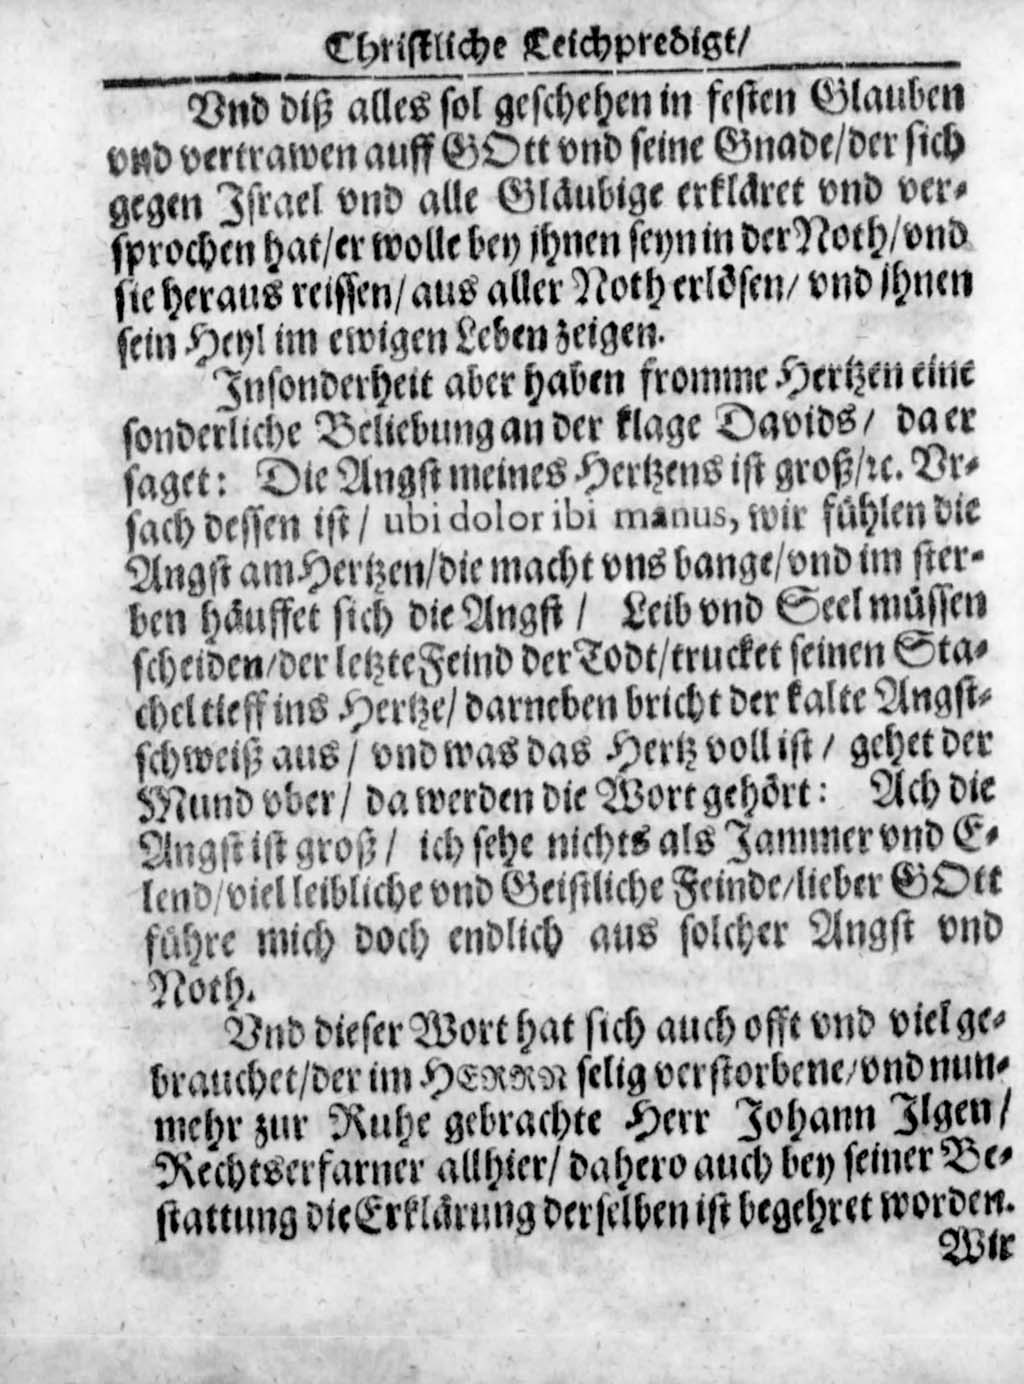 Christliche Leichpredigt/
Vnd diß alles sol geschehen in festen Glauben
vnd vertrawen auff GOtt vnd seine Gnade/der sich
gegen Israel vnd alle Gläubige erkläret vnd ver-
sprochen hat/er wolle bey ihnen seyn in der Noth/vnd
sie heraus reissen/aus aller Noth erlösen/ vnd ihnen
sein Heyl im ewigen Leben zeigen.
Insonderheit aber haben fromme Hertzen eine
sonderliche Beliebung an der klage Davids/ da er
saget: Die Angst meines Hertzens ist groß/ꝛc. Vr-
sach dessen ist/ ubi dolor ibi manus, wir fühlen die
Angst am Hertzen/die macht vns bange/vnd im ster-
ben häuffet sich die Angst/ Leib vnd Seel müssen
scheiden/der letzte Feind der Todt/trucket seinen Sta-
chel tieff ins Hertze/ darneben bricht der kalte Angst-
schweiß aus/ vnd was das Hertz voll ist/ gehet der
Mund vber/ da werden die Wort gehört: Ach die
Angst ist groß/ ich sehe nichts als Jammer vnd E-
lend/viel leibliche vnd Geistliche Feinde/lieber GOtt
führe mich doch endlich aus solcher Angst vnd
Noth.
Vnd dieser Wort hat sich auch offt vnd viel ge-
brauchet/der im HERRN selig verstorbene/vnd nun-
mehr zur Ruhe gebrachte Herr Johann Ilgen/
Rechtserfarner allhier/ dahero auch bey seiner Be-
stattung die Erklärung derselben ist begehret worden.
Wir